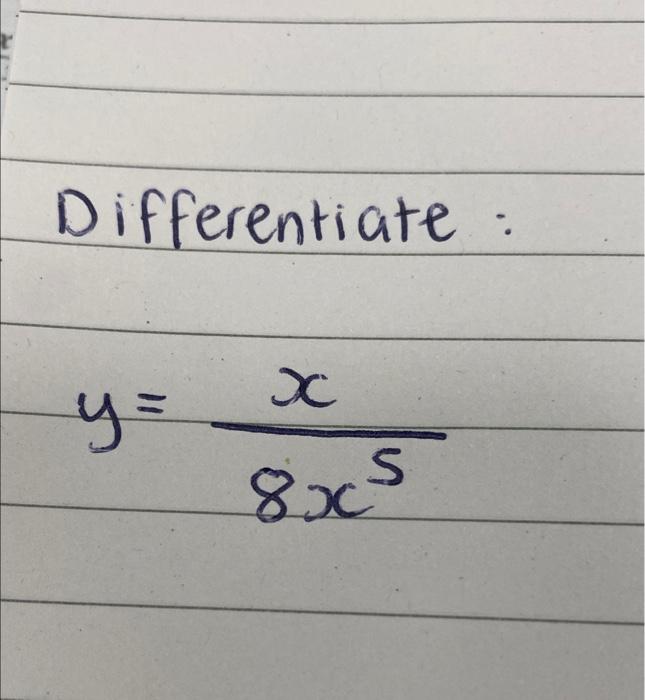 Differentiate :
y = x / 8x⁵